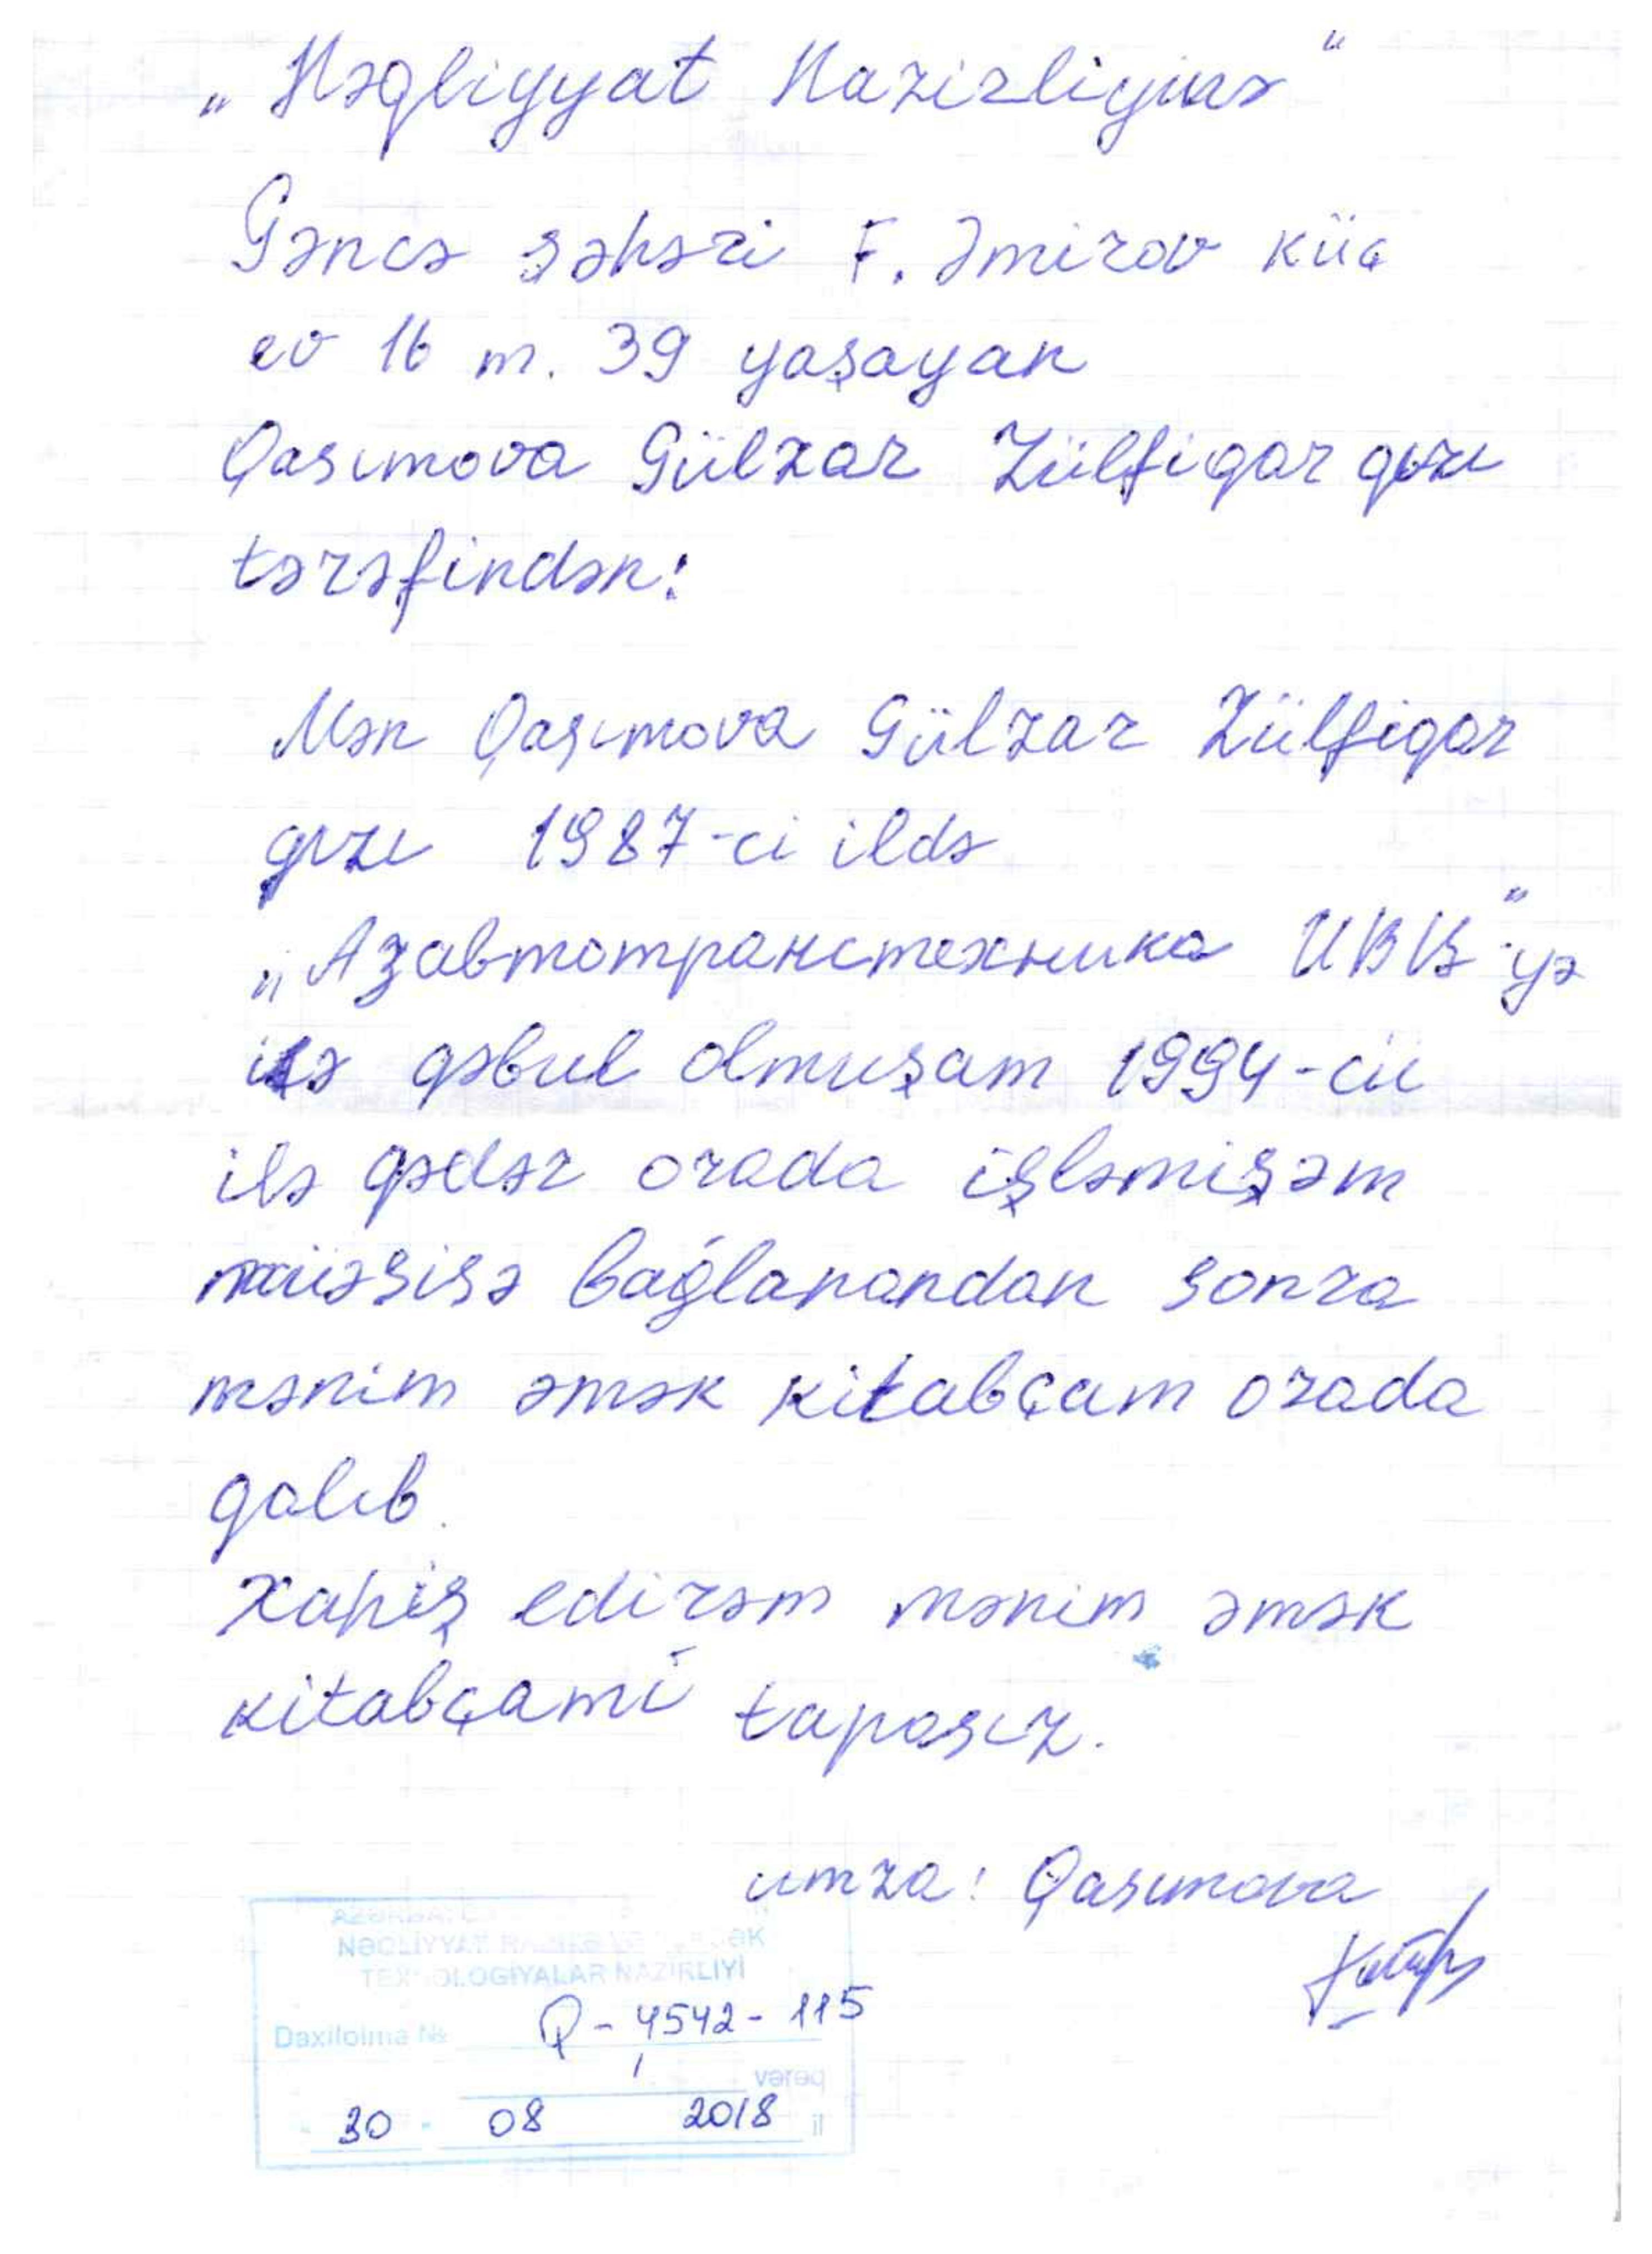 „Nəqliyyat Nazirliyinə“
Gəncə şəhəri F. Əmirov küç
ev 16 m. 39 yaşayan
Qasımova Gülzar Zülfiqar qızı
tərəfindən:
Mən Qasımova Gülzar Zülfiqar
qızı 1987-ci ildə
„Азавтотранстехника ИВЦ“-yə
işə qəbul olmuşam 1994-cü
ilə qədər orada işləmişəm
müəssisə bağlanandan sonra
mənim əmək kitabçam orada
qalıb.
Xahiş edirəm mənim əmək
kitabçami tapasız.
ımza: Qasımova
NƏQLİYYAT
TEXNOLOGİYALAR NAZİRLİYİ
Daxilolma № Q-4542-115
1 vərəq
30 - 08 2018 il